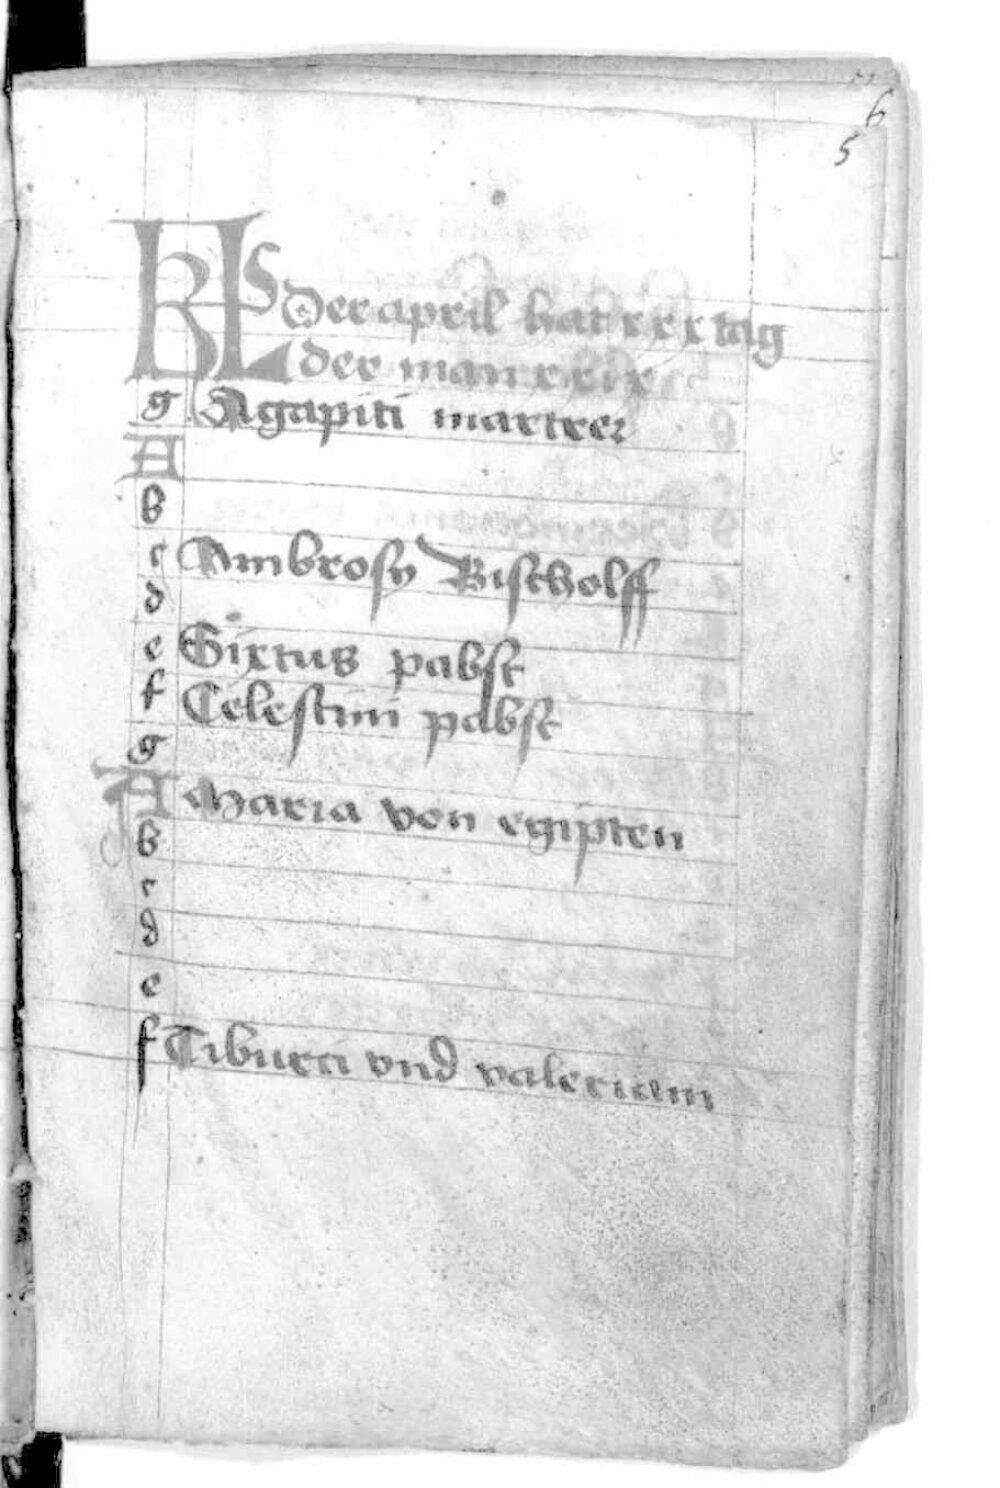 6
5
KLs Der april hat xxx tag
der man xxix
g Agapiti martrer
A
b
c Ambrosy Bischolff
d
e Sixtus pabst
f Celestini pabst
g
A Maria von egipten
b
c
d
e
f Tiburci vnd valeriam